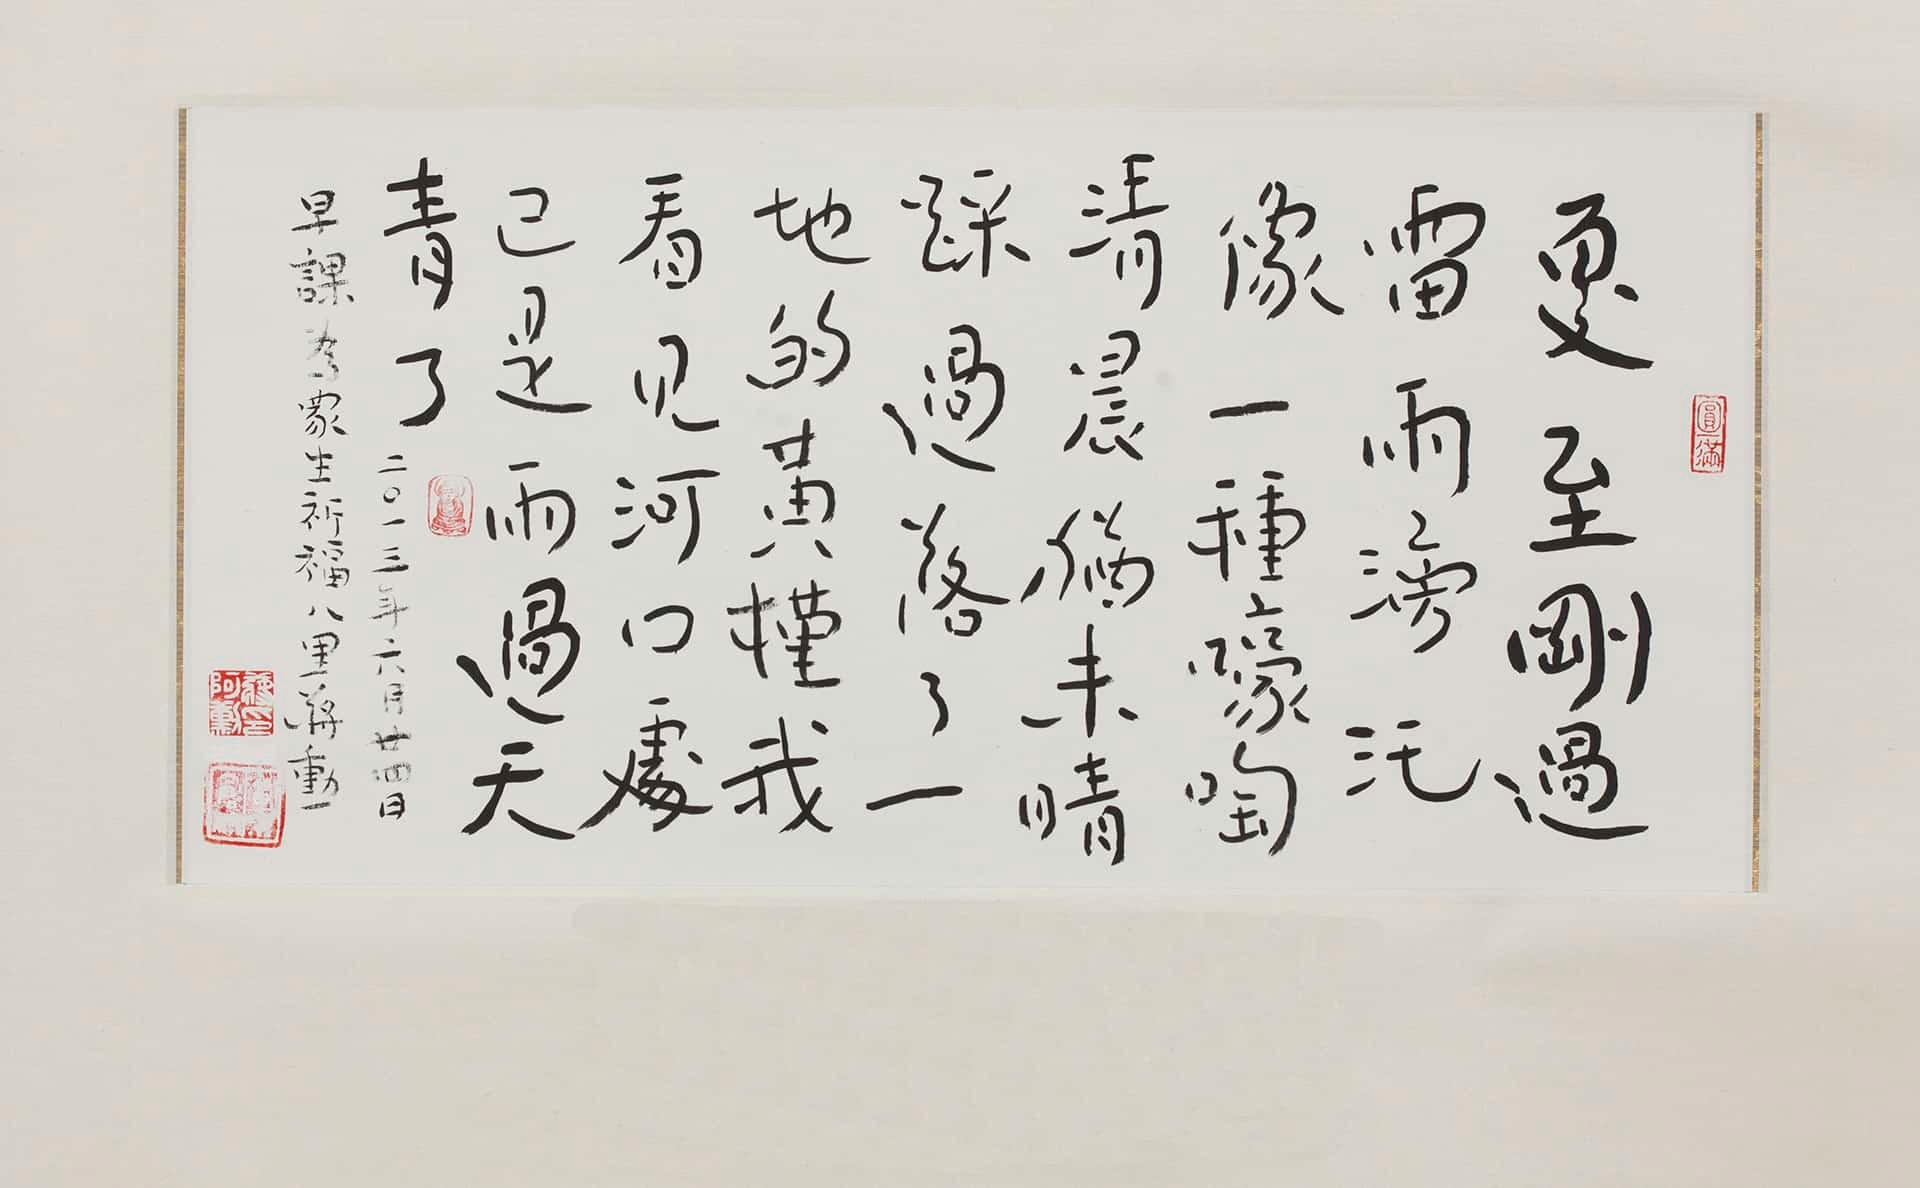 夏至剛過
雷雨滂沱
像一種嚎啕
清晨猶未晴
踩過落了一
地的黃槿我
看見河口處
已是雨過天
青了
二〇一三年六月廿四日
早課為眾生祈福八里蔣勳
圓滿